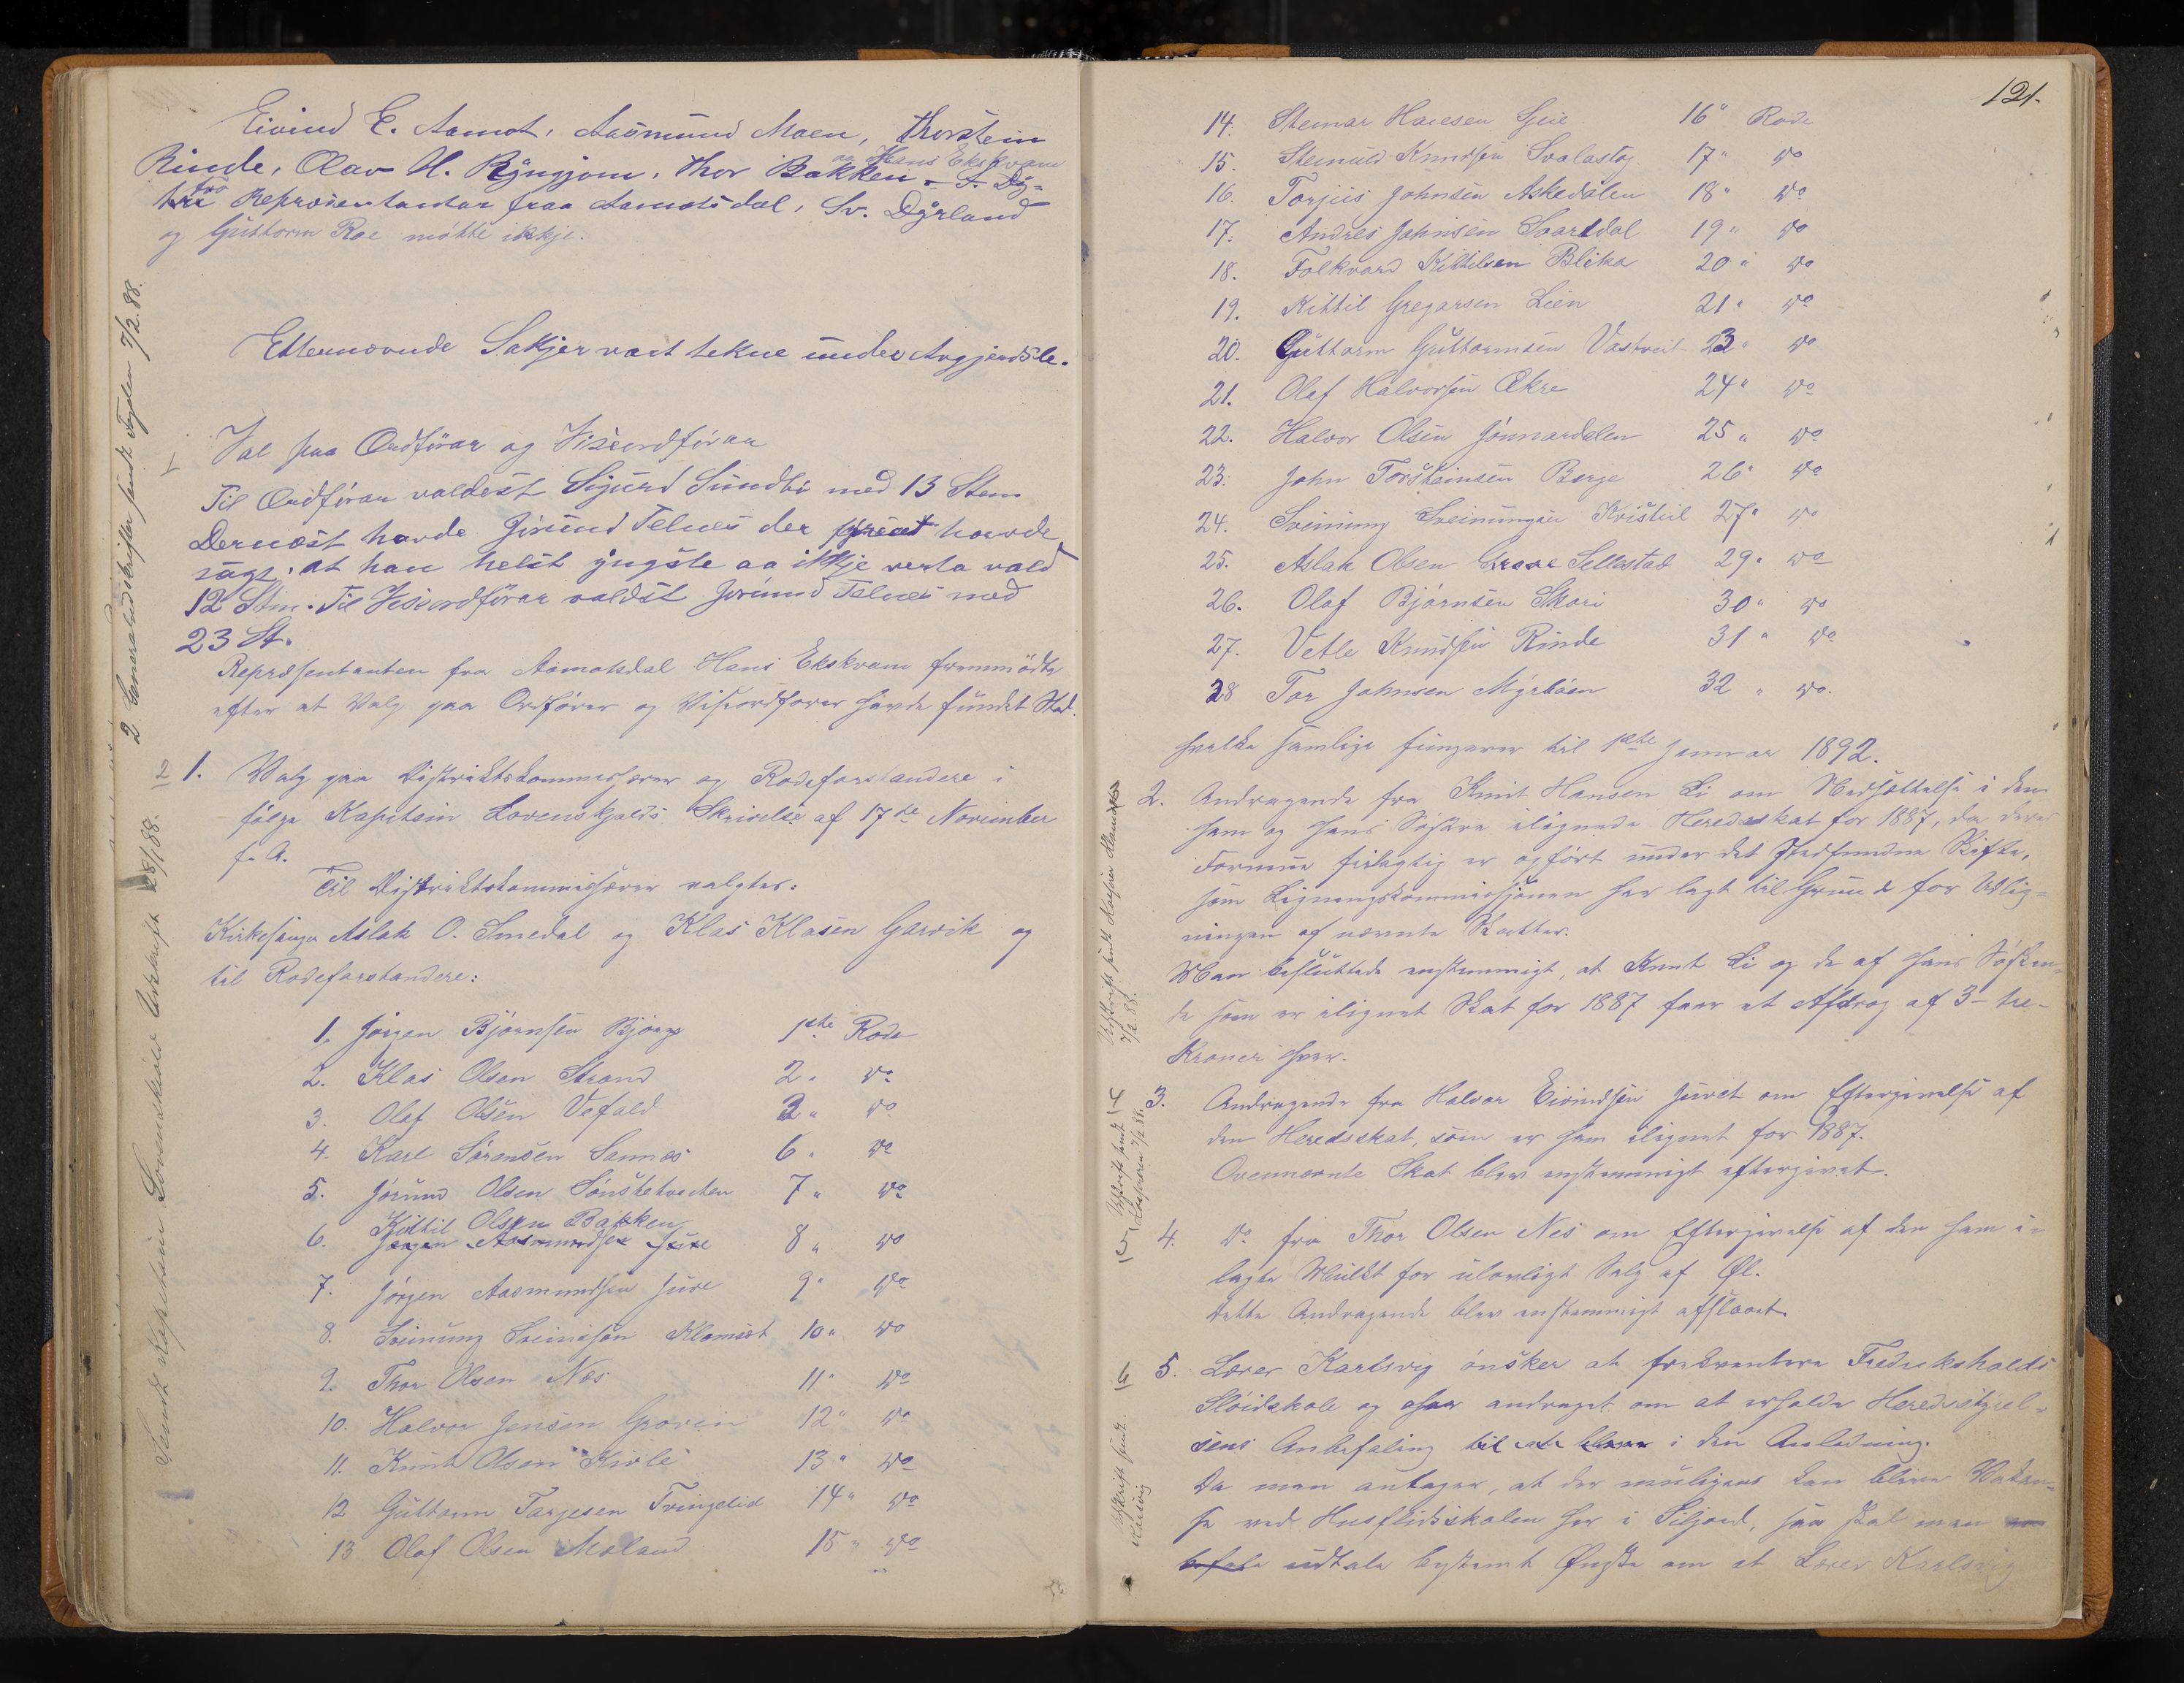 Eivind E. Aamot, Aasmund Moen, Thorstein
Rinde, Olav H. Ryngjom, Thor Bakken
og Hans Ekskvam
tvo Repræsentantar fraa Aamotsdal, Sv. Dyrland
og Guttorm Roe møtte ikkje.
Etternevnde Sakjer vart tekne under Avgjerdsle.
Val paa Ordförar og Viseordförar
Til Ordförar valdest Sigurd Sundbö med 13 Stem
Dernæst havde Jörund Telnes der havde
sagt, at han helst yngste aa ikkje verta vald
12 Stm. Til Viseordförar valdst Jörund Telnes med
23 St.
Repræsentanten fra Aamotsdal Hans Ekskvam fremmödte
efter at Valg paa Ordförer og Viseordforer havde fundet Sted.
1. Valg paa Distriktskommissærer og Rodeforstandere i
følge Kapitein Lovenskjolds Skrivelse af 17de November
f. A.
Til Distriktskommissærer valgtes:
Kirkesanger Aslak O. Smedal og Klas Klasen Garvik og
til Rodeforstandere:
1. Jørgen Bjørnsen Bjørge 1ste Rode
2. Klas Olsen Strand 2 " do
3. Olaf Olsen Vefald 3 " do
4. Karl Sørensen Sannes 6 " do
5. Jørund Olsen 7 " do
6. Kittil Olsen Bakken 8 " do
Jørgen Aasmundsen Jure
7. Jørgen Aasmundsen Jure 9 " do
8. Sveinung Sveinssøn 10 " do
9. Thor Olsen Nes 11 " do
10. Halvor Jensen 12 " do
11. Knut Olsen Kivle 13 " do
12 Guttorm Tarjesen Tvingelid 14 " do
13 Olaf Olsen Moland 15 " do
2 Generaludskrifter sendt Fogden 7/2.88.
Sendt Kapitein Lovenskiold Udskrift 28/1 88.
121.
14. Steinar Hansen 16 " Rode
15. Steinuld Knudsen Svalastog 17 " do
16. Torjus Johnsen Askedalen 18 " do
17. Andres Johnsen Svartdal 19 " do
18. Folkvard Kittilsen Blika 20 " do
19. Kittil Gregarsen Lien 21 " do
20. Guttorm Guttormsen Vastveit 23 " do
21. Olaf Halvorsen Ækre 24 " do
22. Halvor Olsen Jønnardalen 25 " do
23. John Torsteinsen Berge 26 " do
24. Sveinung Sveinungsen 27 " do
25. Aslak Olsen Sellestad 29 " do
26. Olaf Bjørnsen Skori 30 " do
27. Vetle Knudsen Rinde 31 " do
28 Tor Johnsen Myrbøen 32 " do.
hvilke samtlige fungerer til 1ste Januar 1892.
2. Andragende fra Knut Hansen Li om Nedsættelse i den
ham og hans Søskende ilignede Heredsskat for 1887, da deres
Formue feilagtig er opført under det Stedfundne Skifte,
som Ligningskommissionen har lagt til Grund for Udlig=
ningen af nævnte Skatter.
Man besluttede enstemmigt, at Knut Li og de af hans Søsken=
de som er ilignet Skat for 1887 faar et Afdrag af 3 – tre –
Kroner hver.
3. Andragende fra Halvor Eivindsen Juvet om Eftergivelse af
den Heredsskat, som er ham ilignet for 1887.
Ovennevnte Skat blev enstemmigt eftergivet.
4. do fra Thor Olsen Nes om Eftergivelse af den ham i=
lagte Mulkt for ulovligt Salg af Øl.
Dette Andragende blev enstemmigt afslaaet.
5. Lærer Karlsvig ønsker at frekventere Fredriksholds
Sløidskole og har andraget om at erholde Heredsstyrel=
sens Anbefaling til at blive i den Anledning.
Da man antager, at der muligens kan blive Vakan=
se ved Husflidsskolen her i Siljord, saa skal man
udtale bestemt Ønske om at Lærer Karlsvig
Udskrift sendt Kasserer
7/2.88.
Udskrift sendt
Kasserer 7/2 88.
Udskrift sendt
Karlsvig